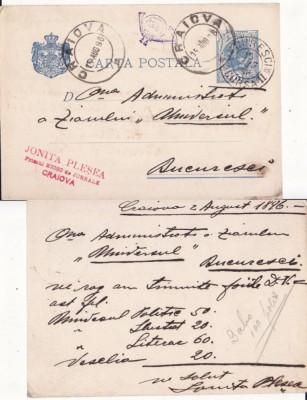 CRAIOVA
CRAIOVA
CARTA POSTALA
D Ona Administratie
a ziarului "Universul"
Bucuresci
JONITA PLESEA
CRAIOVA
Craiova 2 August 1896
Ona Administratie a ziarului
"Universul"
Bucuresci
ve rog am trimite foile D.V.
ast fel
Universul Politic 50.
Ilustrat 20.
Literar 60
Veselia 20.
ve salut
Jonita Plesea